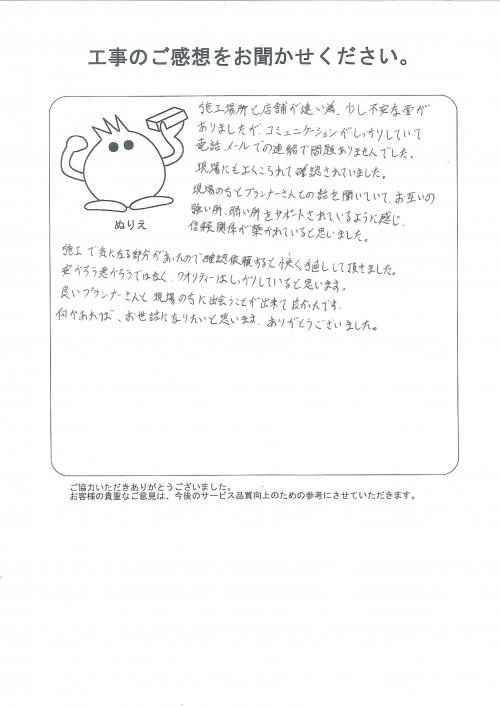 工事のご感想をお聞かせください。
施工場所と店舗が遠い為、少し不安な面が
ありましたが、コミュニケーションがしっかりしていて
電話、メールでの連絡で問題ありませんでした。
現場にもよくこられて確認されていました。
現場の方とプランナーさんとの話を聞いていて、お互いの
強い所、弱い所をサポートされているように感じ、
信頼関係が築かれていると思いました。
ぬりえ
施工で気になる部分があったので確認依頼すると快く手直しして頂きました。
安かろう悪かろうではなく、クオリティーはしっかりしていると思います。
良いプランナーさんと現場の方に出会うことが出来て良かったです。
何かあれば、お世話になりたいと思います。ありがとうございました。
ご協力いただきありがとうございました。
お客様の貴重なご意見は、今後のサービス品質向上のための参考にさせていただきます。